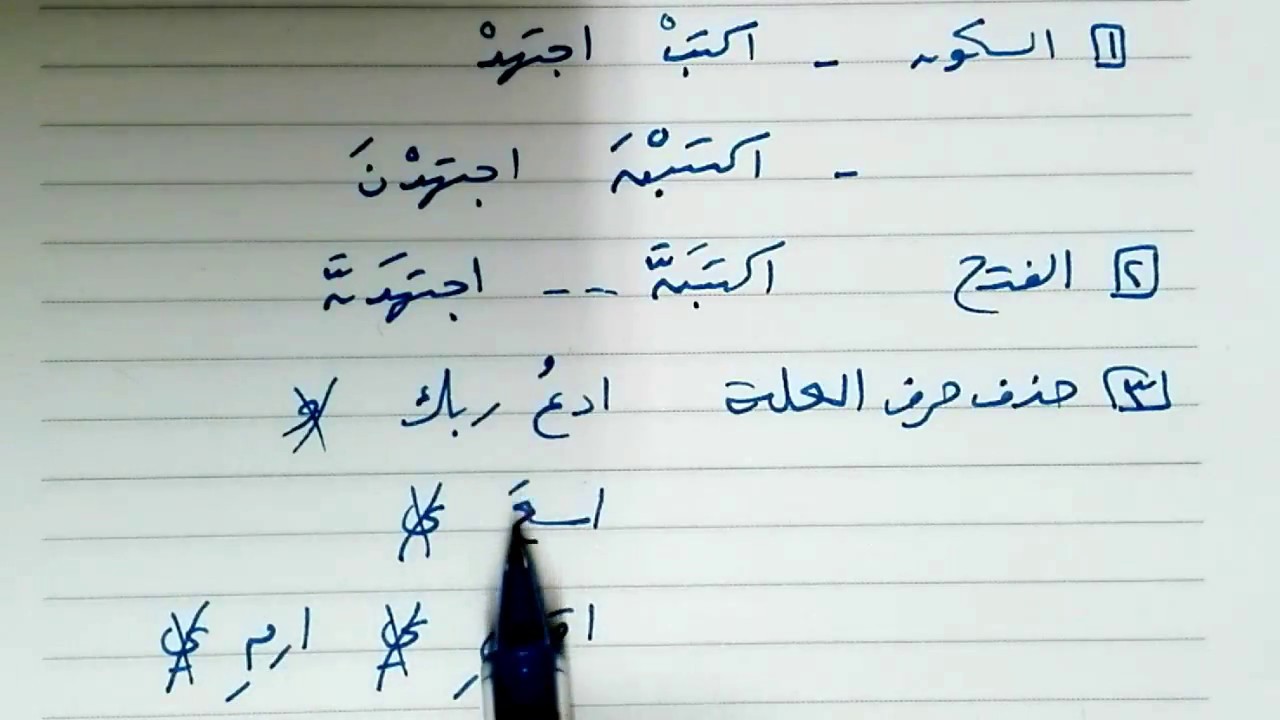 ١ السكون - اكتبْ اجتهدْ
- اكتبْنَ اجتهدْنَ
٢ الفتح اكتبَنَّ -- اجتهدَنَّ
٣ حذف حرف العلة ادعُ ربك و
اسعَ ى
ي ارمِ ي